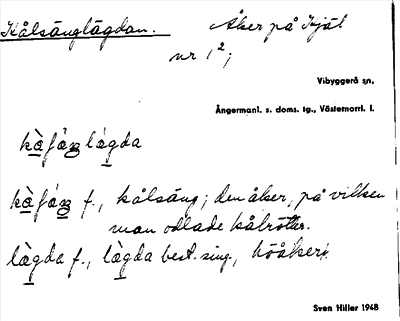 Kålsänglägdan. Åker på Hjäl
nr 1²;
Vibyggerå sn.
Ångermanl. s. doms. tg., Västernorrl. l.
kàfáŋlágda
kàfáŋ f., kålsäng; den åker, på vilken
man odlade kålrötter.
làgda f., làgda best. sing., höåker.
Sven Hiller 1948